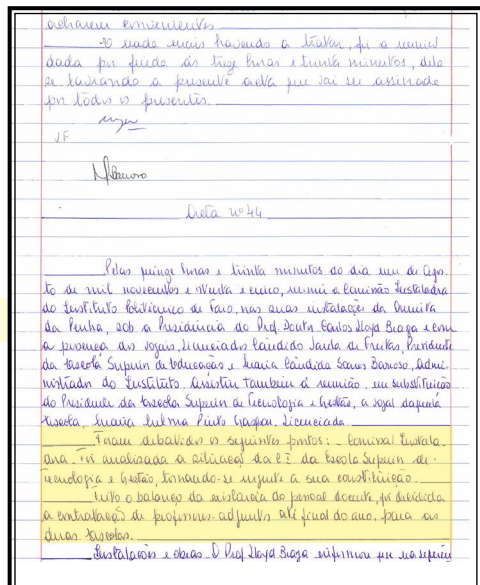 acharem convenientes.
E nada mais havendo a tratar, foi a reunião
dada por finda às treze horas e trinta minutos, dela
se lavrando a presente acta que vai ser assinada
por todos os presentes.
JF
Acta nº 44
Pelas quinze horas e trinta minutos do dia um de Agos
to de mil novecentos e oitenta e cinco, reuniu a Comissão Instaladora
do Instituto Politécnico de Faro, nas suas instalações da Quinta
da Penha, sob a Presidência do Prof. Doutor Carlos Lloyd Braga e com
a presença dos vogais, Licenciados Cândido Sarda de Freitas, Presidente
da Escola Superior de Educação e Maria Cândida Soares Barroso, Admi-
nistrador do Instituto. Assistiu também à reunião, em substituição
do Presidente da Escola Superior de Tecnologia e Gestão, a vogal daquela
Escola, Maria Pinto Gaspar, Licenciada.
Foram debatidos os seguintes pontos: - Comissão Instala
dora. Foi analisada a situação da C.I. da Escola Superior de
Tecnologia e Gestão, tornando-se urgente a sua constituição.
Feito o balanço da existência de pessoal docente, foi decidida
a contratação de professores-adjuntos até final do ano, para as
duas Escolas.
Instalações e obras - O Prof. Lloyd Braga informou que